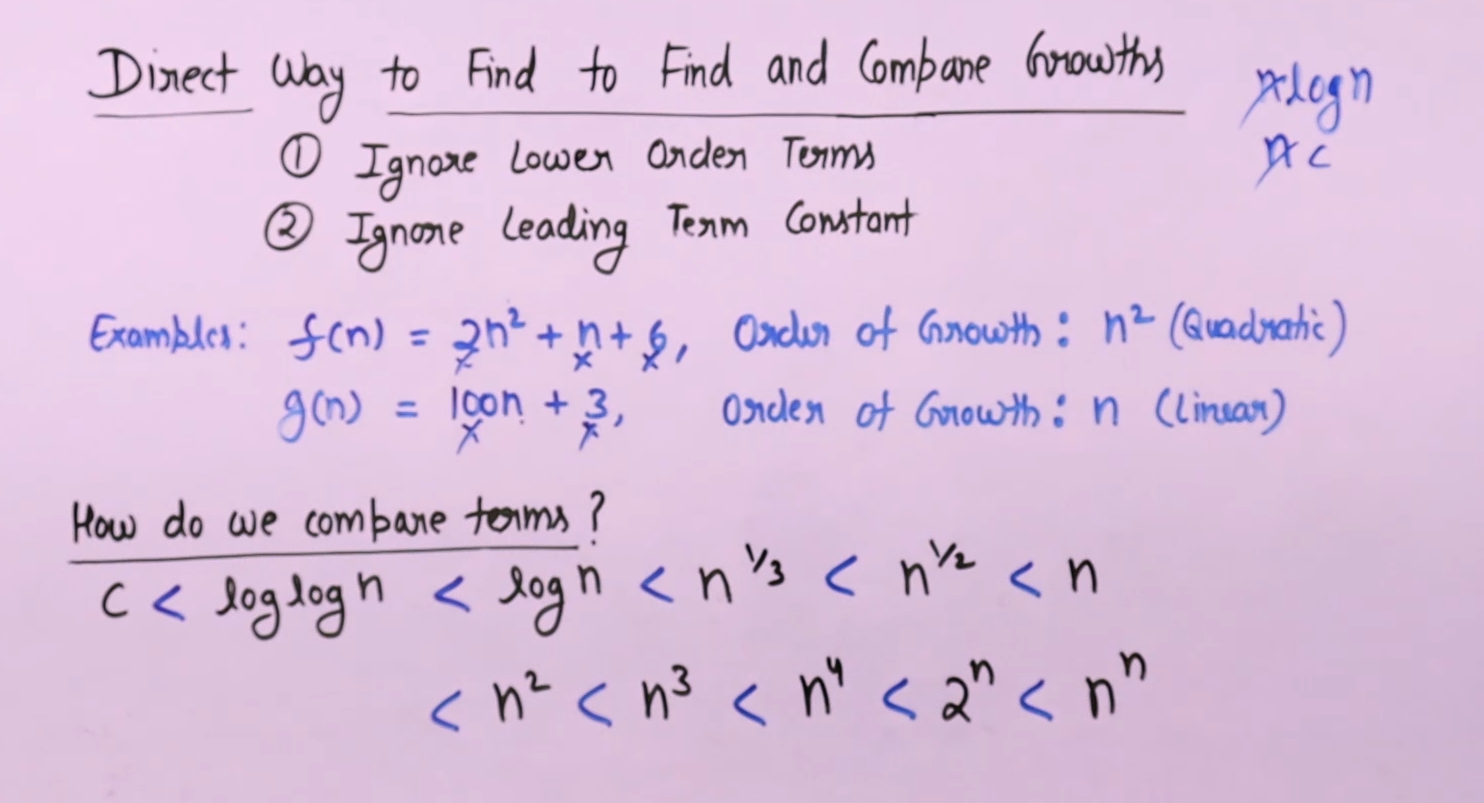 Direct Way to Find to Find and Compare Growths
n log n
n c
① Ignore Lower Order Terms
② Ignore Leading Term Constant
Examples: f(n) = 2n² + n + 6, Order of Growth: n² (Quadratic)
g(n) = 100n + 3, Order of Growth: n (Linear)
How do we compare terms?
C < log log n < log n < n^1/3 < n^1/2 < n
< n² < n³ < n⁴ < 2ⁿ < nⁿ